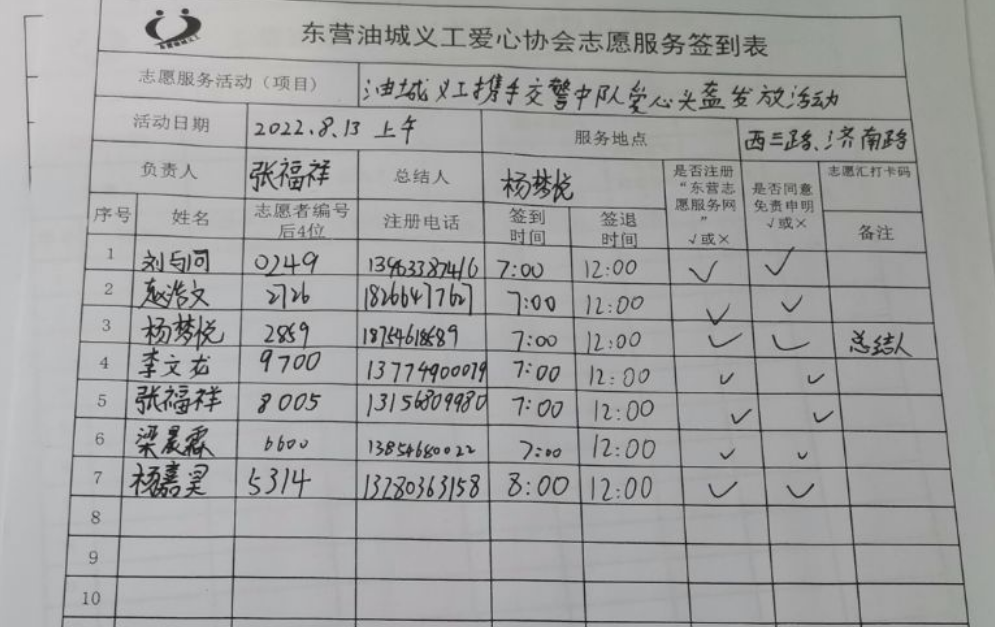 东营油城义工
东营油城义工爱心协会志愿服务签到表
志愿服务活动（项目） 油城义工携手交警中队爱心头盔发放活动
活动日期 2022.8.13 上午 服务地点 西三路、济南路
负责人 张福祥 总结人 杨梦悦 是否注册“东营志愿服务网” √或× 是否同意免责申明 √或× 志愿汇打卡码
序号 姓名 志愿者编号后4位 注册电话 签到时间 签退时间 备注
1 刘与问 0249 13963387416 7:00 12:00 ✓ ✓
2 赵浩文 2726 18266477627 7:00 12:00 ✓ ✓
3 杨梦悦 2859 18754618689 7:00 12:00 ✓ ✓ 总结人
4 李文龙 9700 13774900079 7:00 12:00 ✓ ✓
5 张福祥 8005 13156809980 7:00 12:00 ✓ ✓
6 梁晨霖 6600 13854680022 7:00 12:00 ✓ ✓
7 杨嘉昊 5314 13280363158 8:00 12:00 ✓ ✓
8
9
10